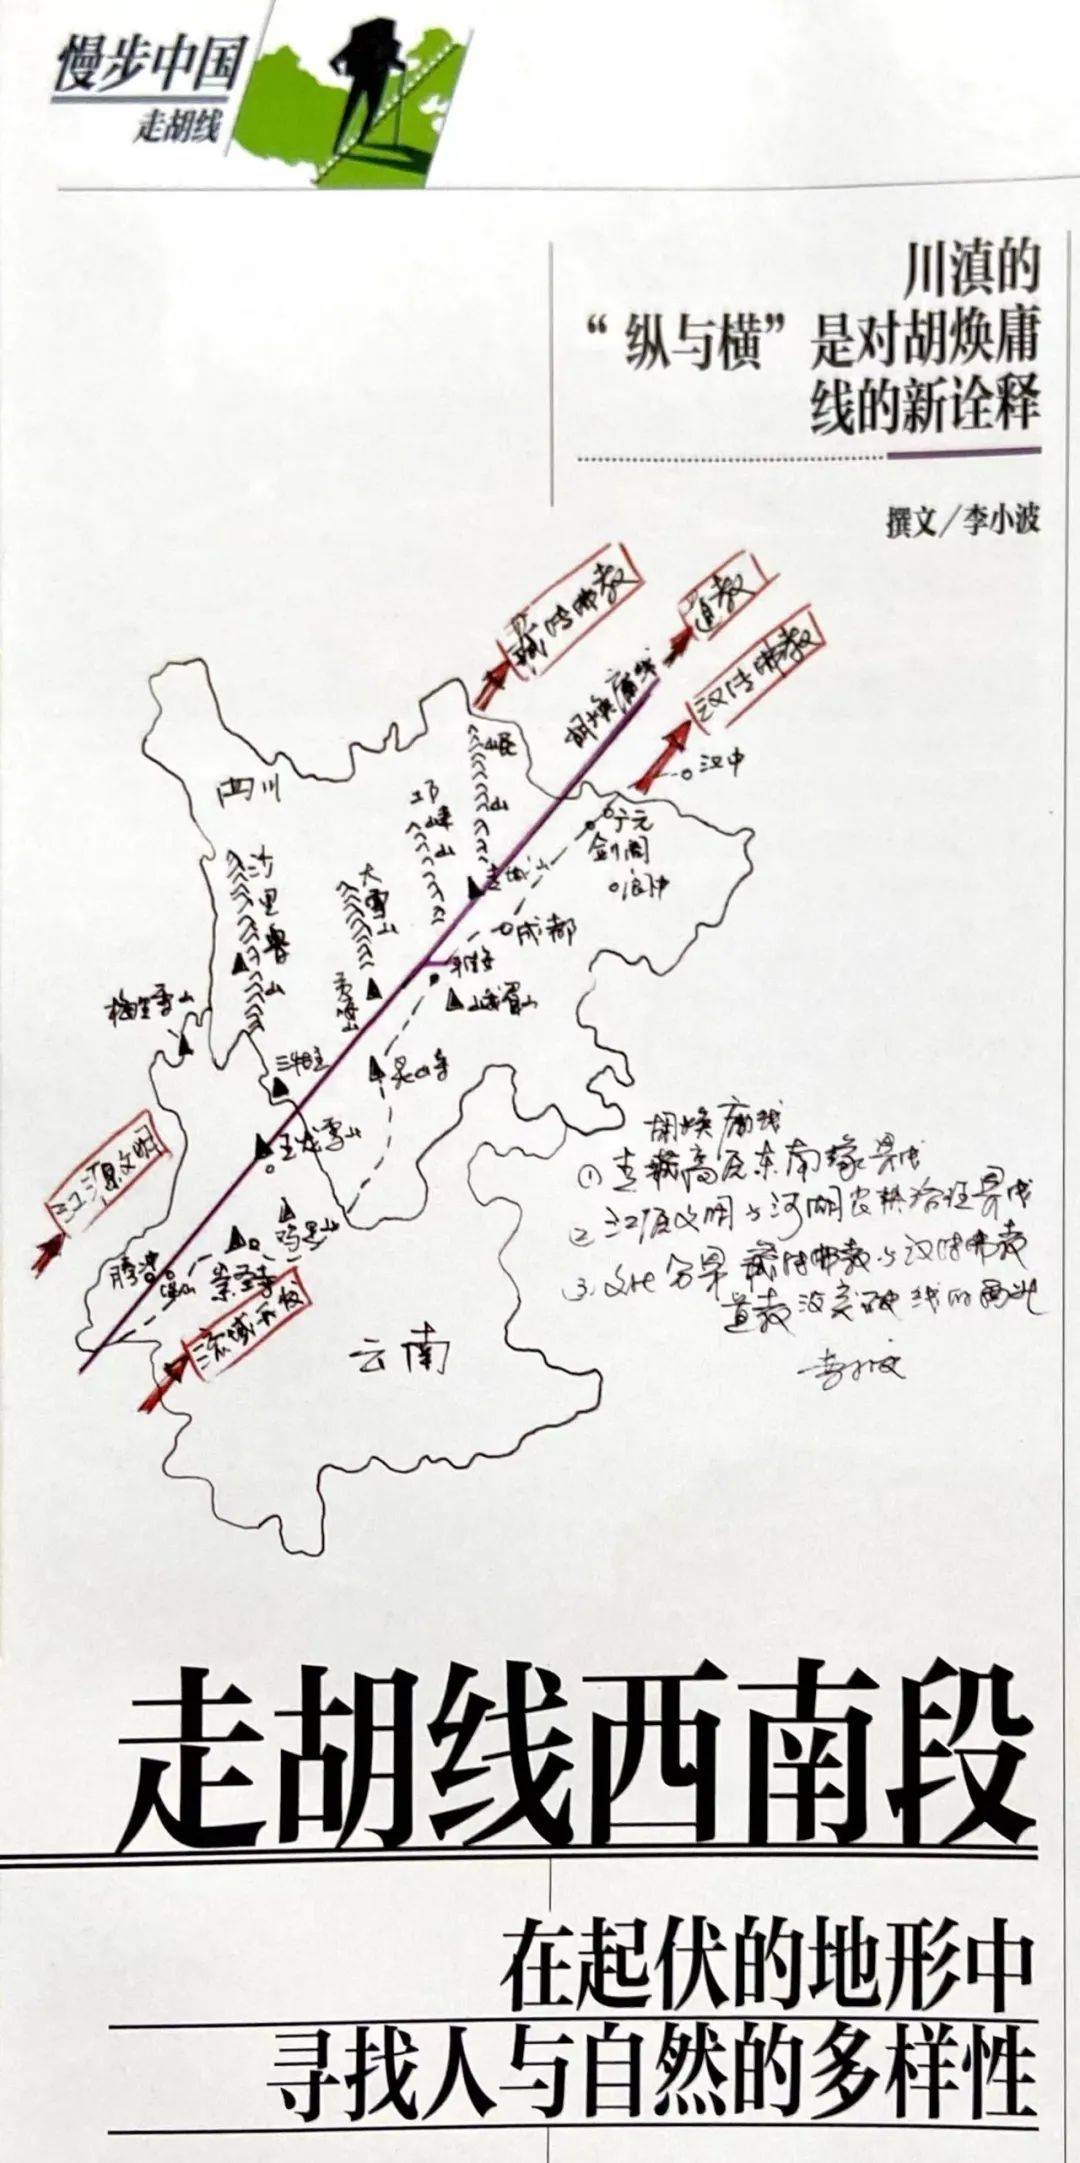 慢步中国
走胡线
川滇的
“纵与横”是对胡焕庸
线的新诠释
撰文／李小波
藏传佛教
道教
汉传佛教
胡焕庸线
汉中
岷山
四川
邛崃山
广元
剑阁
阆中
沙里鲁山
大雪山
成都
雅安
峨眉山
贡嘎山
梅里雪山
灵山寺
玉龙雪山
江源文明
鸡足山
腾冲
保山
崇圣寺
流域
云南
胡焕庸线
① 青藏高原东南缘界线
② 江源文明与河湖农耕
③ 文化分界 藏传佛教与汉传佛教
道教没突破线的
李小波
走胡线西南段
在起伏的地形中
寻找人与自然的多样性